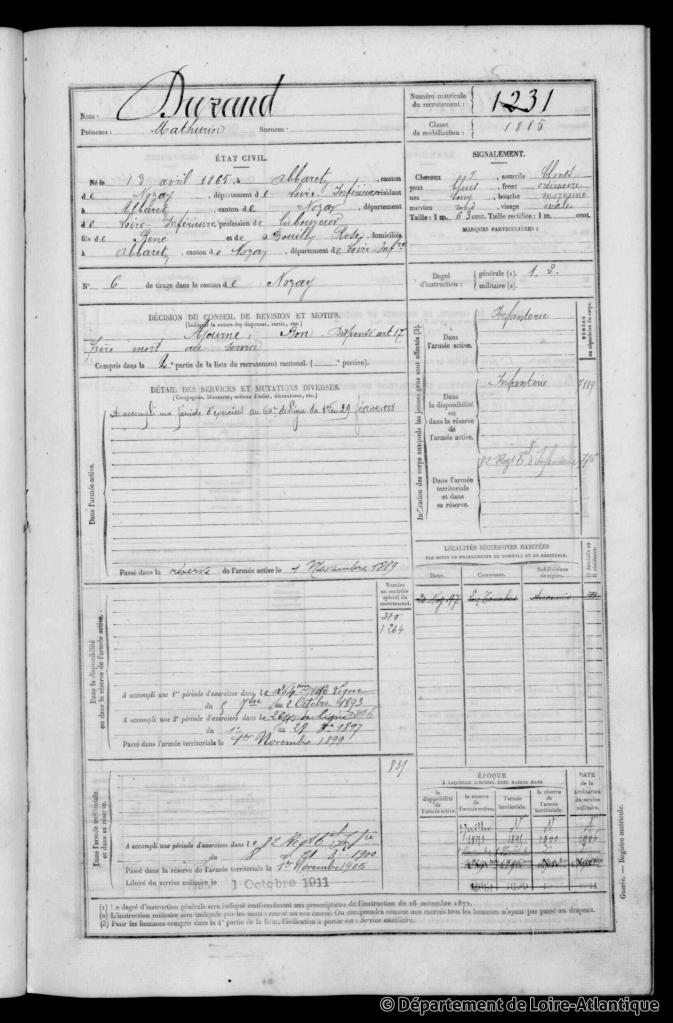 Nom : Durand
Prénoms : Mathurin Surnom :
Numéro matricule du recrutement : 1231
Classe de mobilisation : 1885
ÉTAT CIVIL.
Né le 13 avril 1865, à Abbaretz, canton
de Nozay, département de Loire Inférieure, résidant
à Abbaretz, canton de Nozay, département
de Loire Inférieure, profession de Laboureur
fils de René et de Rose, domiciliés
à Abbaretz, canton de Nozay, département de Loire Infre
N° 6 de tirage dans le canton de Nozay
SIGNALEMENT.
Cheveux et sourcils blonds
yeux bleus, front ordinaire
nez long, bouche moyenne
menton rond, visage ovale
Taille : 1 m. 63 cent. Taille rectifiée : 1 m. cent.
MARQUES PARTICULIÈRES :
Degré d'instruction : générale (1). 1. 2.
militaire (2).
DÉCISION DU CONSEIL DE REVISION ET MOTIFS.
(Indiquer la nature des dispenses, sursis, etc.)
Ajourné, Bon Dispensé art. 17
frère mort au service
Compris dans la 2e partie de la liste du recrutement cantonal. ( portion).
DÉTAIL DES SERVICES ET MUTATIONS DIVERSES.
(Campagnes, blessures, actions d'éclat, décorations, etc.)
Dans l'armée active.
A accompli une période d'exercices au de Ligne du 1er au 29 février 1888
Passé dans la réserve de l'armée active le 1 Novembre 1889
Indication des corps auxquels les jeunes gens sont affectés (3).
NUMÉRO au répertoire du corps.
Dans l'armée active. Infanterie
Dans la disponibilité ou dans la réserve de l'armée active. Infanterie
Dans l'armée territoriale et dans sa réserve. 82 Regt d'Infanterie
LOCALITÉS SUCCESSIVES HABITÉES
PAR SUITE DE CHANGEMENTS DE DOMICILE OU DE RÉSIDENCE.
Dates. Communes. Subdivisions de région. D domicile ou R résidence.
20 Nov 97 Les Touches Ancenis
Dans la disponibilité ou dans la réserve de l'armée active.
Numéro au contrôle spécial du recrutement.
310
1264
A accompli une 1re période d'exercices dans le de Ligne
du 5 7bre au 2 Octobre 1893
A accompli une 2e période d'exercices dans le
du au 29 1897
Passé dans l'armée territoriale le 1er Novembre 1899
Dans l'armée territoriale et dans sa réserve.
839
A accompli une période d'exercices dans le 82 Regt Infrie
du 8 au 21 1900
Passé dans la réserve de l'armée territoriale le 1er Novembre 1905
Libéré du service militaire le 1 Octobre 1911
ÉPOQUE
À LAQUELLE L'HOMME DOIT PASSER DANS
la disponibilité de l'armée active. la réserve de l'armée active. l'armée territoriale. la réserve de l'armée territoriale.
DATE de la libération du service militaire.
(1) Le degré d'instruction générale sera indiqué conformément aux prescriptions de l'instruction du 26 novembre 1872.
(2) L'instruction militaire sera indiquée par les mots : exercé ou non exercé. On comprendra comme non exercés tous les hommes n'ayant pas passé au drapeau.
(3) Pour les hommes compris dans la 4e partie de la liste, l'indication à porter est : Service auxiliaire.
Guerre. — Registre matricule.
© Département de Loire-Atlantique